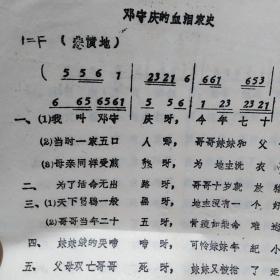 邓守庆的血泪家史
1=F （悲愤地）
5 5 6 1 | 2321 6 | 661 653
6 65 6561 | 5 56 | 1 23 2321
一、(1)我 叫 邓守 庆 呀， 今 年 七 十
(2)当时一家五口 人 哪， 哥哥妹妹和 父
(3)母亲同样受煎 熬 呀， 为 地主洗 衣
二、 为了活命无出 路 呀， 哥哥十岁就 放
三、(1)天下乌鸦一般 黑 呀， 地主没有一 个 好
(2)哥哥当年二十 五 呀， 难
四、 妹妹饿的哭啼 啼 呀， 可怜妹妹年 纪 小
五、 父母双亡哥哥 死 呀， 妹妹又被 给 了